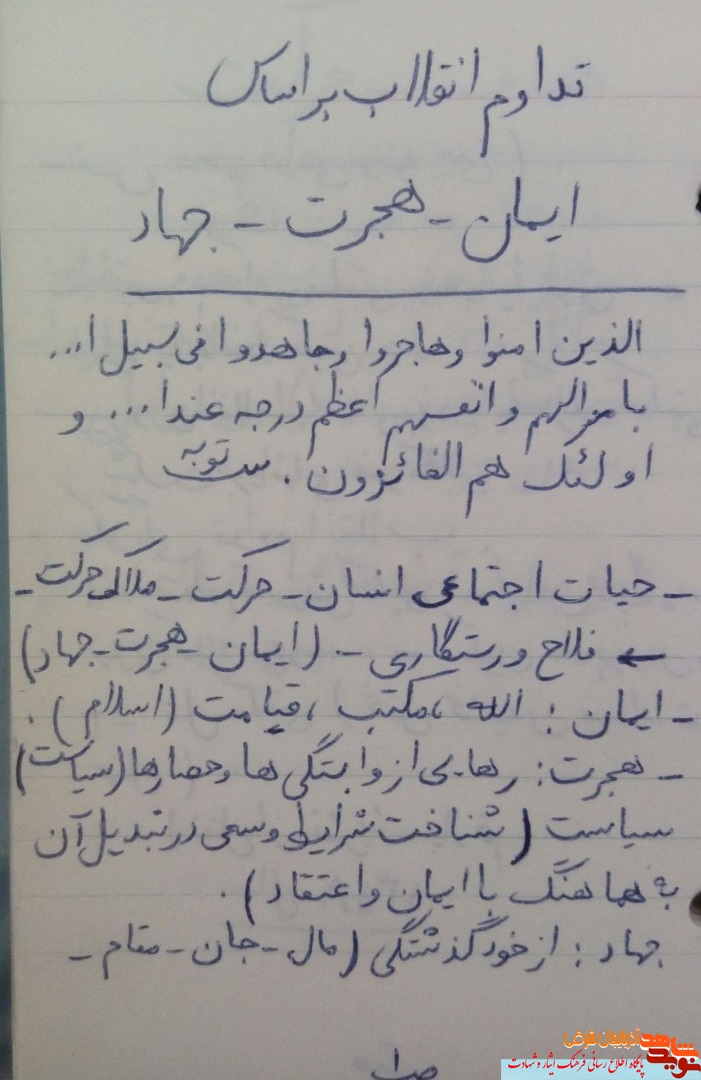 تداوم انقلاب براساس
ایمان - هجرت - جهاد
الذین امنوا وهاجروا وجاهدوا فی سبیل ا...
باموالهم و انفسهم اعظم درجه عندا... و
اولئک هم الفائزون. س توبه
- حیات اجتماعی انسان - حرکت - ملاک حرکت -
← فلاح و رستگاری - (ایمان - هجرت - جهاد)
- ایمان : الله ، مکتب ، قیامت (اسلام) .
- هجرت : رهایی از وابستگی ها و حصارها (سیاست)
سیاست (شناخت شرایط و سعی در تبدیل آن
به هماهنگ با ایمان و اعتقاد) .
جهاد : ازخودگذشتگی (مال - جان - مقام -
ص۱
نوید شاهد آذربایجان غربی
پایگاه اطلاع رسانی فرهنگ ایثار و شهادت